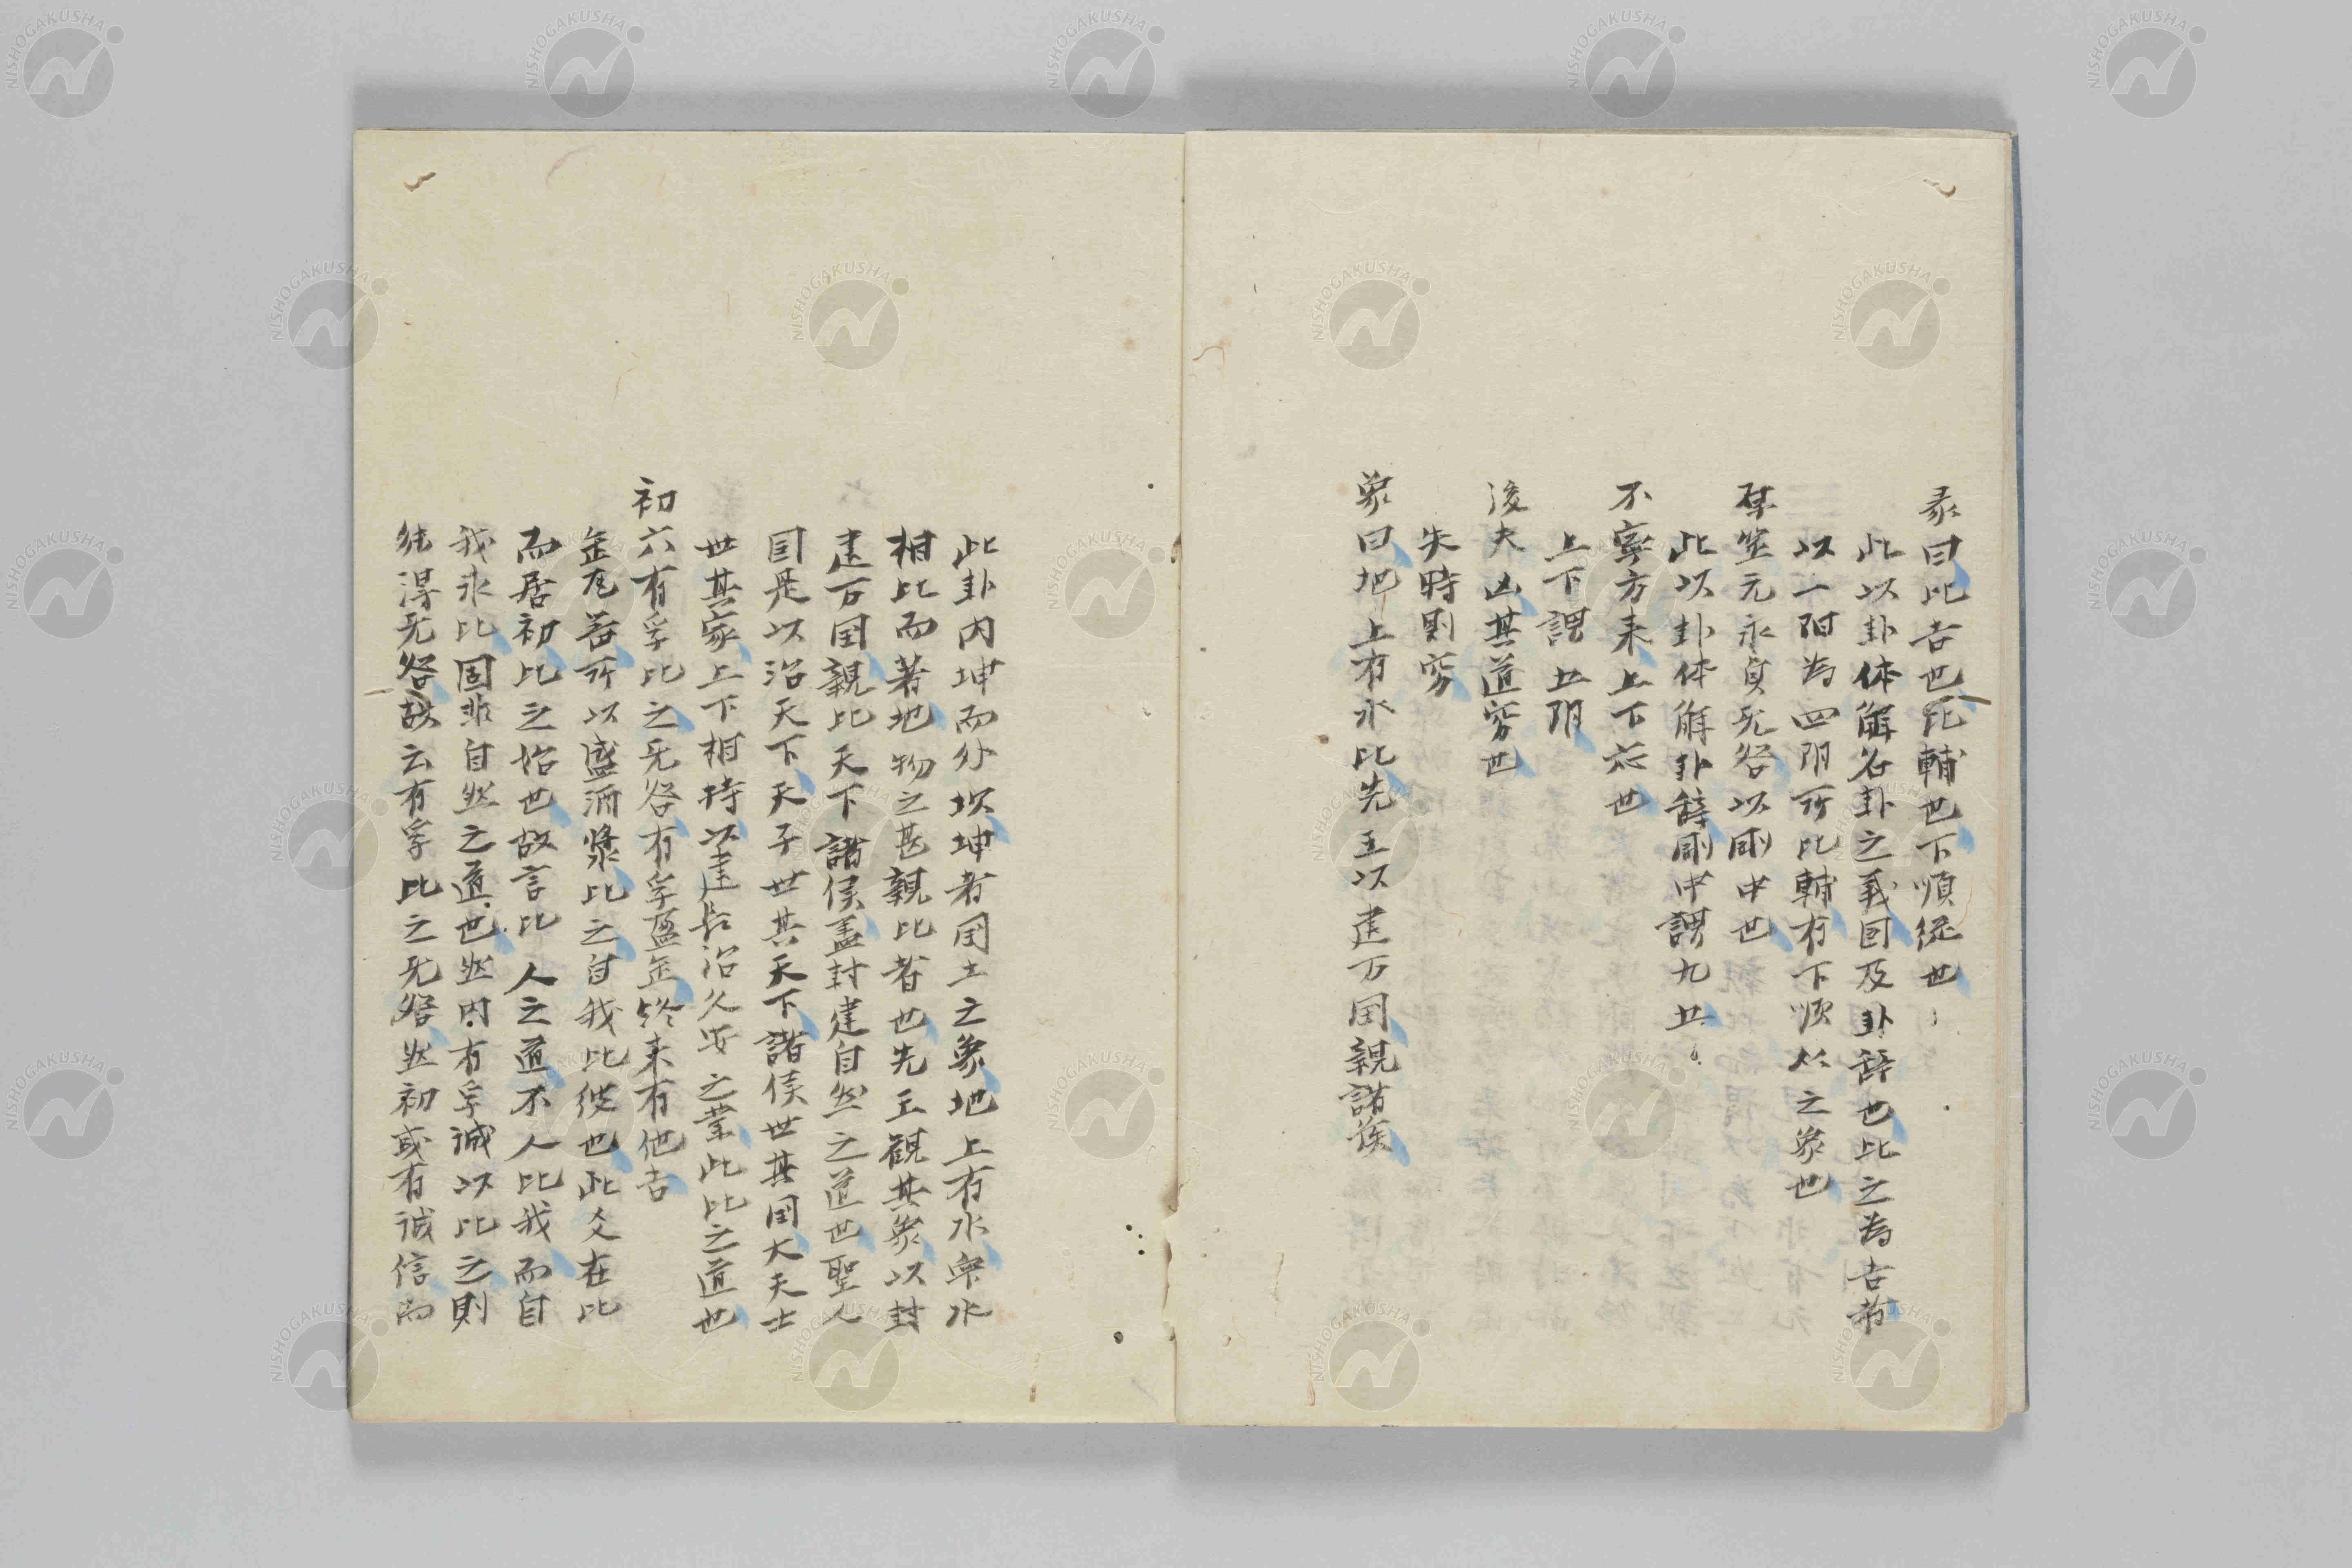 彖曰比吉也比輔也下順從也
此以卦体解名卦之義因及卦辞也比之為吉者
以一阳為四阴所比輔有下順从之象也
原筮元永貞无咎以剛中也
此以卦体解卦辞剛中謂九五
不寧方来上下应也
上下謂五阴
後夫凶其道窮也
失時則窮
象曰地上有水比先王以建万国親諸侯
此卦内坤而外坎坤者国土之象地上有水舉水
相比而著地物之甚親比者也先王観其象以封
建万国親比天下諸侯盖封建自然之道也聖人
因是以治天下天子世其天下諸侯世其国大夫士
世其家上下相待以達長治久安之業此比之道也
初六有孚比之无咎有孚盈缶終来有他吉
缶瓦器所以盛酒漿比之自我比彼也此爻在比
而居初比之始也故言比人之道不人比我而自
我求比固非自然之道也然内有孚誠以比之則
終得无咎故云有孚比之无咎然初或有誠信而
NISHOGAKUSHA